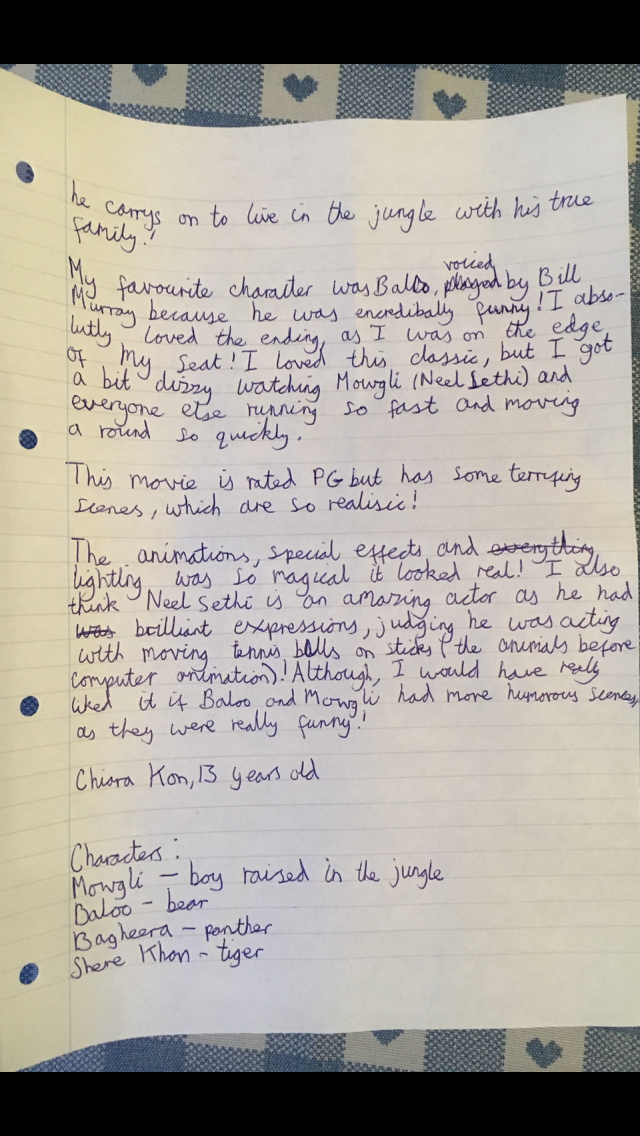 he carrys on to live in the jungle with his true
family!
My favourite character was Baloo, voiced played by Bill
Murray because he was incredibally funny! I abso-
lutly loved the ending, as I was on the edge
of my seat! I loved this classic, but I got
a bit dizzy watching Mowgli (Neel Sethi) and
everyone else running so fast and moving
a round so quickly.
This movie is rated PG but has some terrifing
scenes, which are so realisic!
The animations, special effects and everything
lighting was so magical it looked real! I also
think Neel Sethi is an amazing actor as he had
was brilliant expressions, judging he was acting
with moving tennis balls on sticks (the animals before
computer animation)! Although, I would have really
liked it if Baloo and Mowgli had more humorous scenes,
as they were really funny!
Chiara Kon, 13 years old
Characters:
Mowgli - boy raised in the jungle
Baloo - bear
Bagheera - panther
Shere Khan - tiger